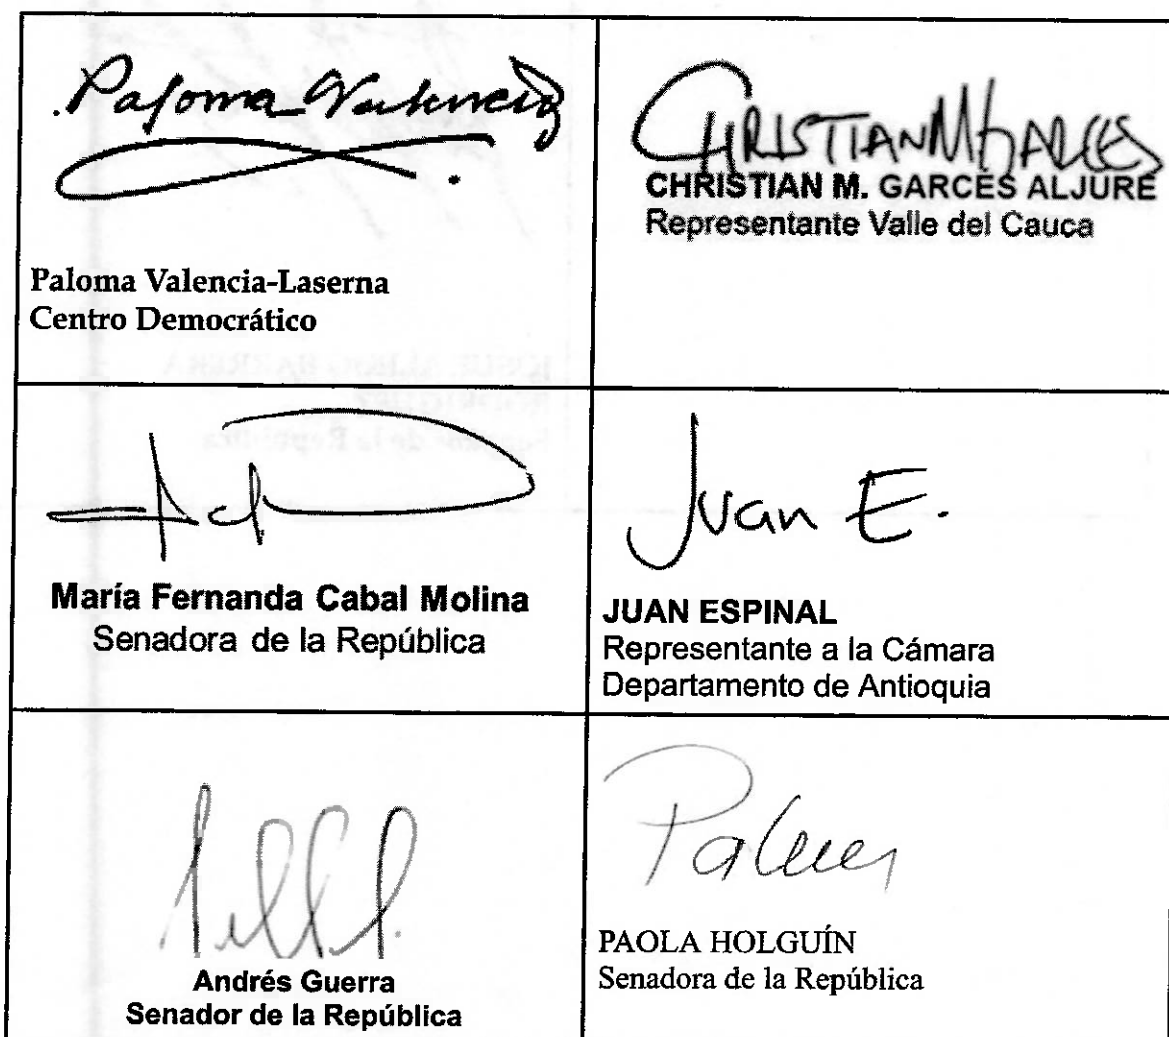 Paloma Valencia
Paloma Valencia-Laserna
Centro Democrático
CHRISTIAN M GARCES
CHRISTIAN M. GARCÉS ALJURE
Representante Valle del Cauca
María Fernanda Cabal Molina
Senadora de la República
Juan E.
JUAN ESPINAL
Representante a la Cámara
Departamento de Antioquia
Andrés Guerra
Senador de la República
PAOLA HOLGUÍN
Senadora de la República